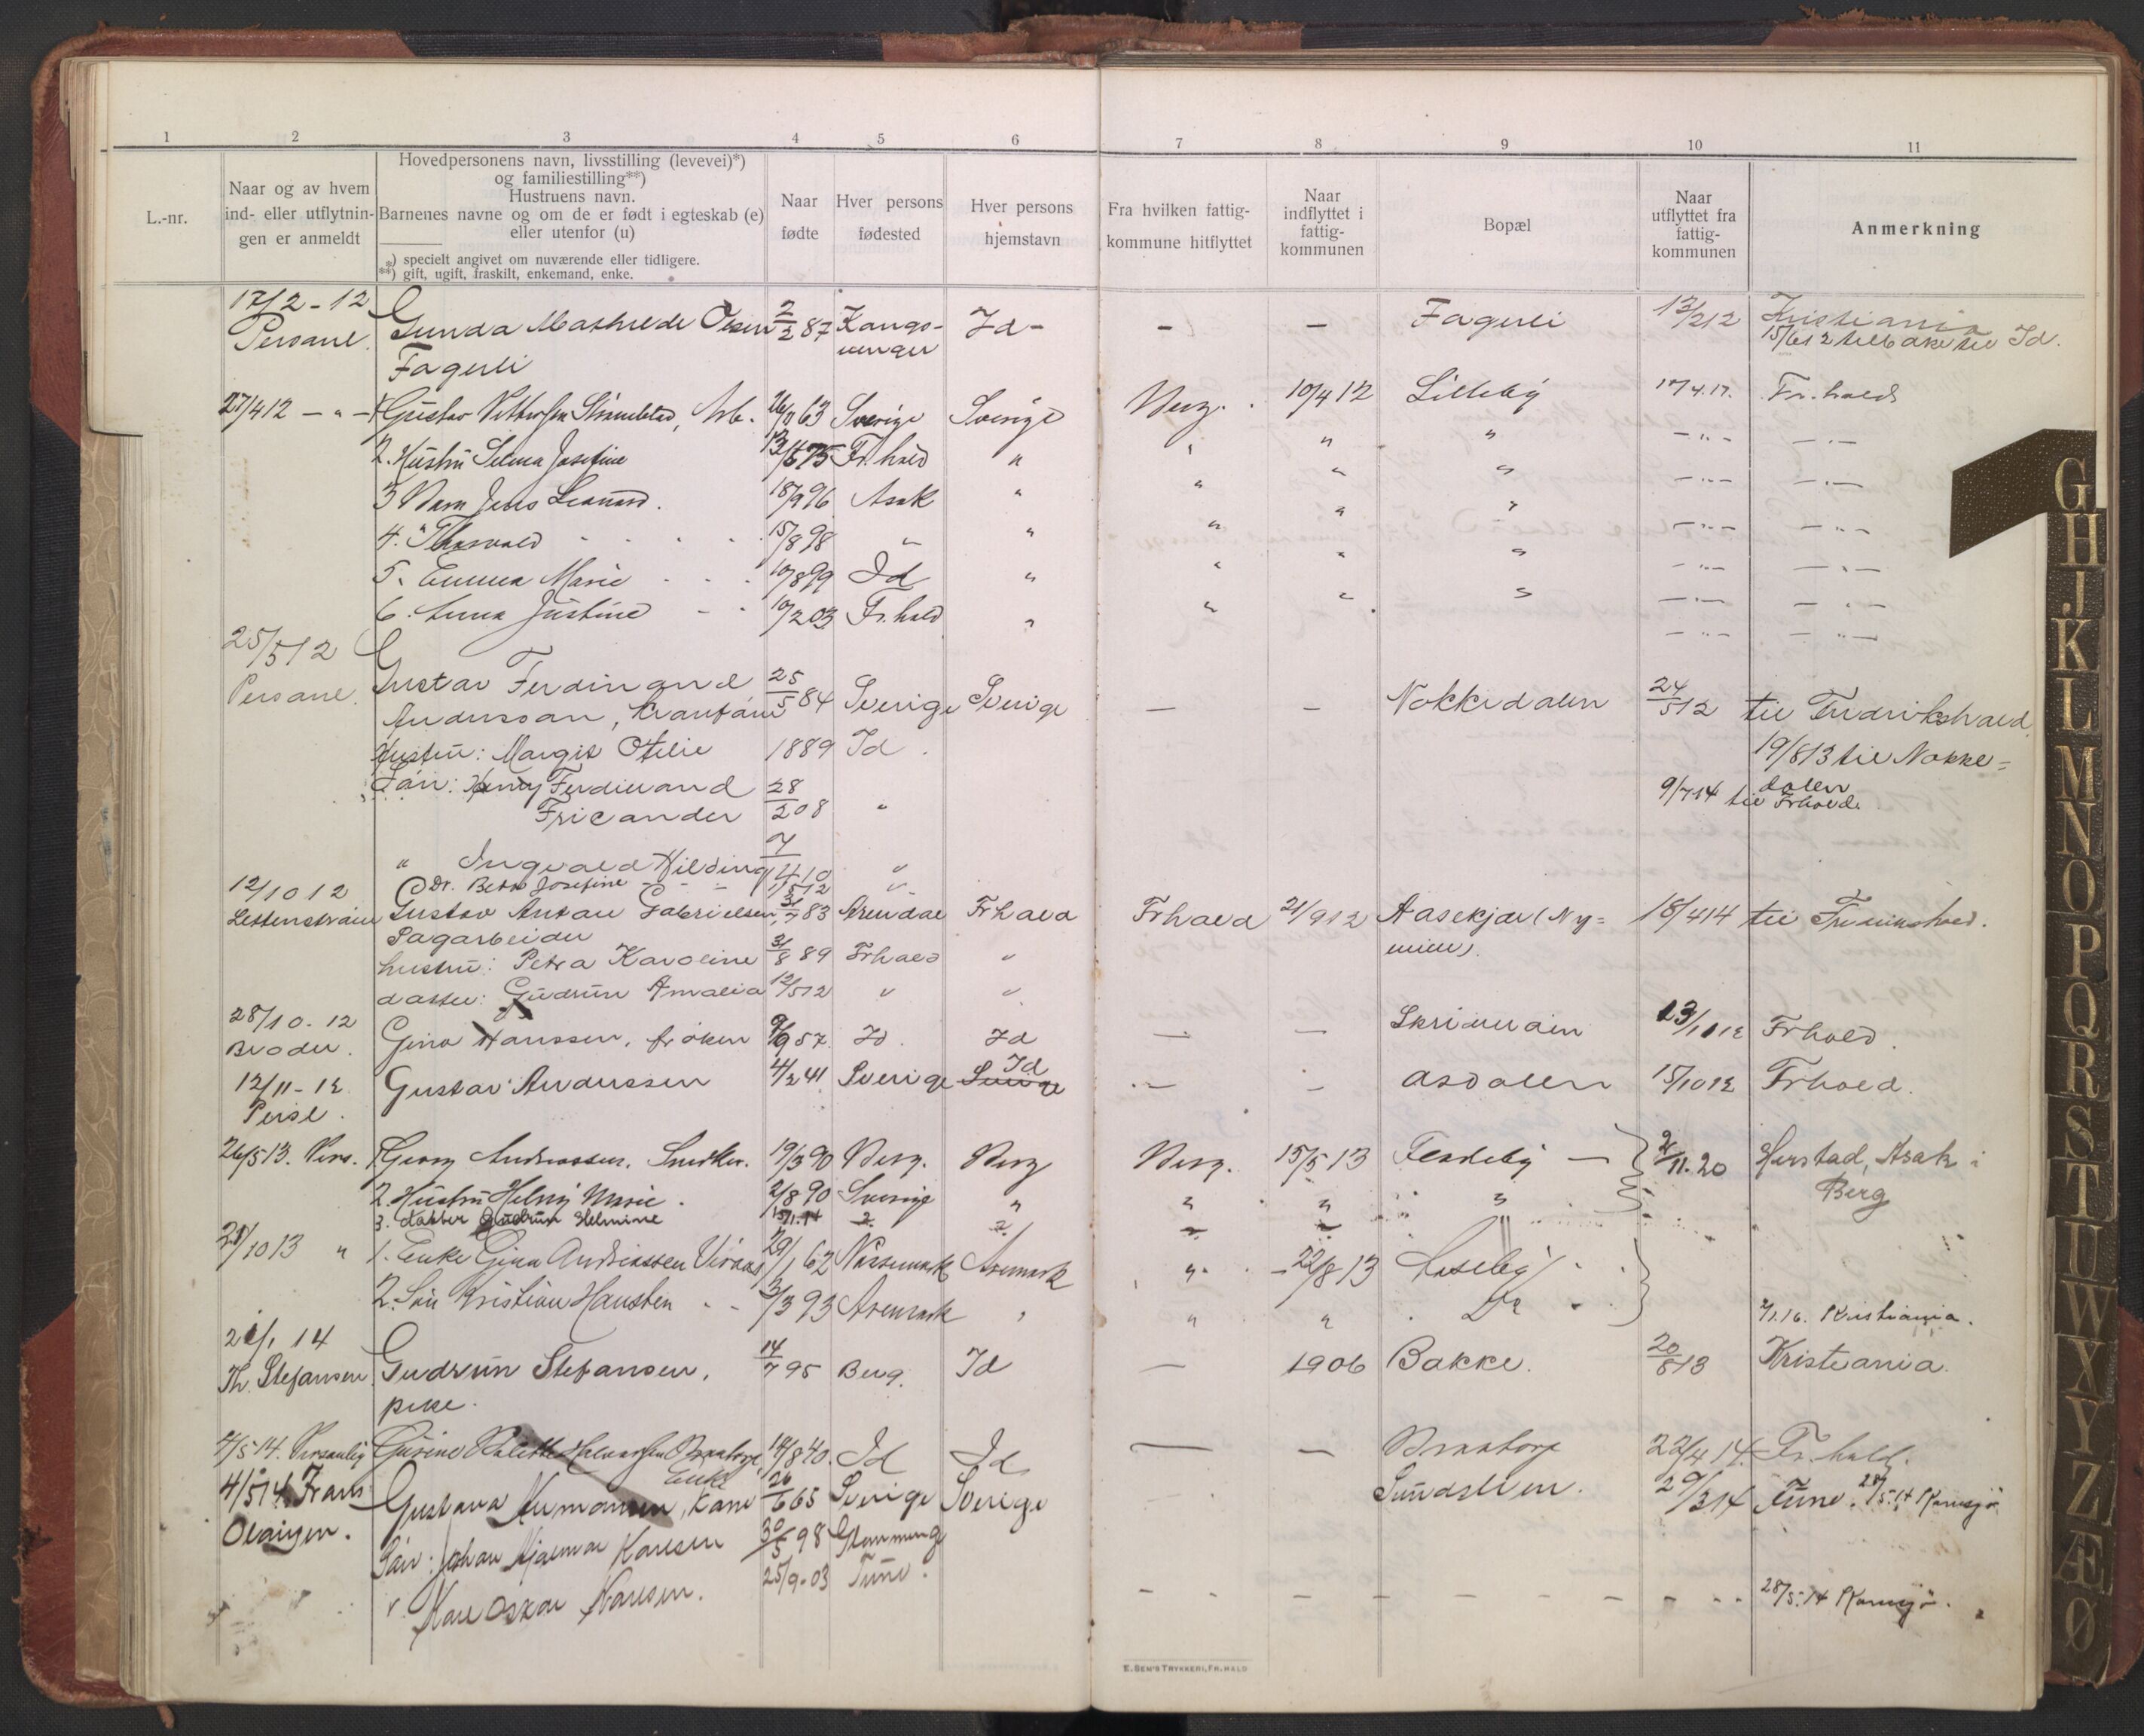 1 2 3 4 5 6 7 8 9 10 11
L.-nr.
Naar og av hvem
ind- eller utflytnin-
gen er anmeldt
Hovedpersonens navn, livsstilling (levevei)*)
og familiestilling**)
Hustruens navn.
Barnenes navne og om de er født i egteskab (e)
eller utenfor (u)
*) specielt angivet om nuværende eller tidligere.
**) gift, ugift, fraskilt, enkemand, enke.
Naar
fødte
Hver persons
fødested
Hver persons
hjemstavn
Fra hvilken fattig-
kommune hitflyttet
Naar
indflyttet i
fattig-
kommunen
Bopæl
Naar
utflyttet fra
fattig-
kommunen
Anmerkning
17/2-12 Gunda Mathilde Olsen 2/2 87 Kongs- Id - - - Fagerli 13/2 12 Kristiania
Personl. vinger 15/6 12 tilbake til Id.
Fagerli
27/4 12 - " - 1 Gustav , Arb. 26/11 63 Sverige Sverige Berg. 10/4 12 Lilleby 17/4.17. Fr.hald
2. Hustru Selma Josefine 13/5 75 Fr.hald " " " " -"- -"-
3 Barn Jens Leonard. 18/9 96 Asak " " " " -"- -"-
4. " Thorvald 15/8 98 " " " " " -"- -"-
5. Emma Marie 10/8 99 Id " " " " -"- -"-
6. Anna Justine 10/2 03 Fr.hald " " " " -"- -"-
25/5 12
Personl. Gustav Ferdinand 25/5 84 Sverige Sverige - - Nokkedalen 24/5 12 til Fredrikshald
Anderssan,
Hustru: Margit Otelie 1889 Id. 19/8 13 til Nokke=
dalen
Søn: Henry Ferdinand 28/2 08 " 9/7 14 til Frhald.
Fricander
" Ingvald Hilding 7/4 10 "
Dr. Betra Josefine 12 "
12/10 12 Gustav Antan Gabrielsen 3/7 83 Arendal Frhald Frhald 21/9 12 Aasekjær (Ny= 18/4 14 til Fredrikshald.
Sagarbeider
hustru: Petra Karoline 31/8 89 Frhald "
datter: Gudrun Amalia 12/5 12 " "
28/10-12
Broder. Gina Hanssen, frøken 9/9 57. Id. Id - - 23/10 12 Frhald.
12/11-12 Gustav Anderssen 4/2 41 Sverige Sverige Id - - Asdalen 15/10 12 Frhald.
Persl.
26/5 13. Pers. 1 Georg Andreassen. Snedker. 19/3 90 Berg. Berg Berg. 15/5 13 - 2/11.20 Herstad, Asak i
Berg
2. Hustru Helny Marie. 2/8 90 Sverige " " " "
3. datter Gudrun Helmine 15/1.14 " " " "
21/10 13 " 1. Enke Gina Andreassen 29/1 62 Aremark " 22/8 13
2. Søn Kristian Hansten 3/3 93 Aremark " " " Do 2/1.16. Kristiania.
2 /1 14
Th. Stefansen Gudrun Stefansen, 14/7 95 Berg. Id - 1906 Bakke. 20/8 13 Kristiania.
pike.
4/5 14. Personlig Gusine Halvorsen Braatorp, 14/8 40. Id Id - - Braatorp 22/4 14. Fr.hald.
Enke
4/5 14 Frans Gustava Hermansen, Kone 26/6 65 Sverige Sverige Sundstuen. 29/3 14 Tune. 28/5.14 Kornsjø
Olausen.
Søn: Johan Hjalmar Karlsen 30/5 98 Glemminge
" Karl Oskar Karlsen. 25/9-03 Tune. 28/5.14 Kornsjø.
E. SEM'S TRYKKERI, FR.HALD
G
H
J
K
L
M
N
O
P
Q
R
S
T
U
W
X
Y
Z
Æ
Ø